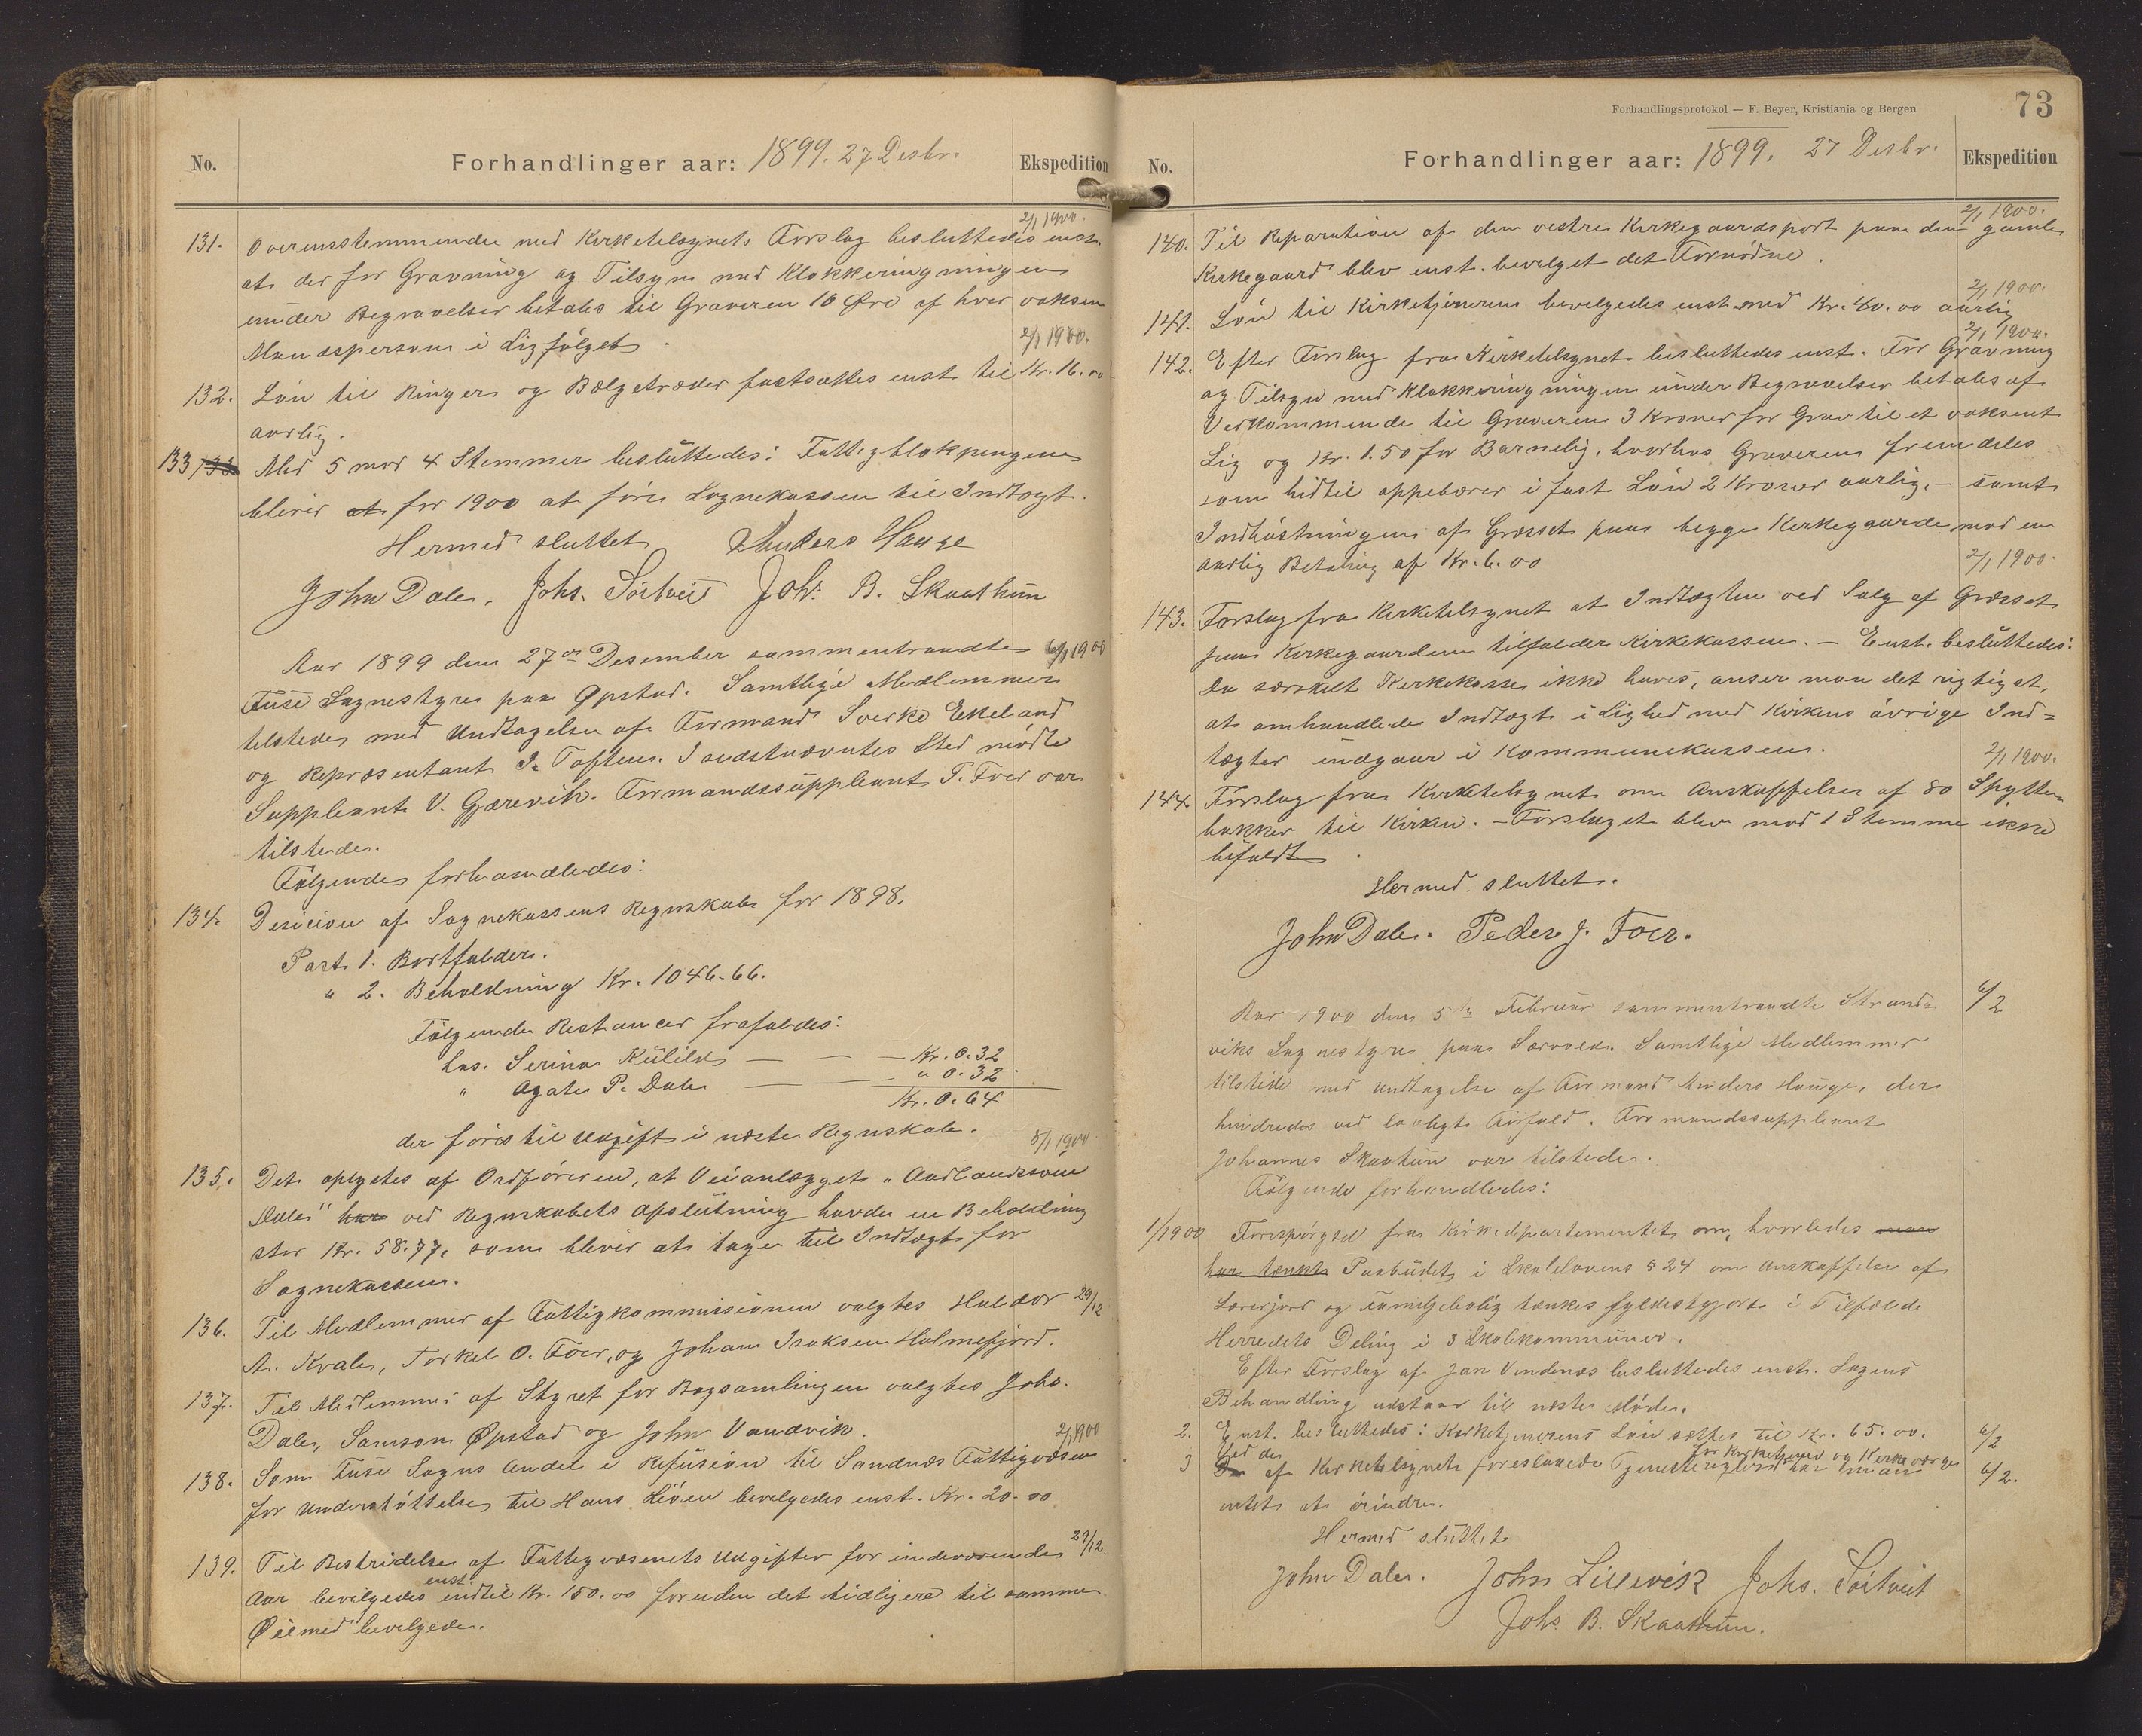 No.
Forhandlinger aar: 1899. 27 Desbr.
Ekspedition
2/1 1900.
131. Overensstemmende med Kirketilsynets Forslag besluttedes enst.
at der for Gravning og Tilsyn med Klokkeringningen
under Begravelser betales til Graveren 16 Øre af hver voksen
Mandsperson i Ligfølget.
2/1 1900.
132. Løn til Ringer og Bælgetræder fastsattes enst. til Kr. 16.00
aarlig.
133 Med 5 mod 4 Stemmer besluttedes: Fattigblokpengene
bliver at for 1900 at føre Sognekassen til Indtægt.
Hermed sluttet Anders Hauge
John Dale. Johs. Söitveit Johs. B. Skaathun
Aar 1899 den 27de Desember sammentraadte
6/1 1900
Fuse Sognestyre paa Øpstad. Samtlige Medlemmer
tilstede med Undtagelse af Formand Sverke Eikeland
og Repræsentant I. Toften. I sidstnævntes Sted mødte
Suppleant V. Gjærevik. Formandssuppleant P. Foer var
tilstede.
Følgende forhandledes:
134. Desision af Sognekassens Regnskab for 1898.
Post 1. Bortfalder.
" 2. Beholdning Kr. 1046.66.
Følgende Restancer frafaldes:
hos. Serina Külild — — — Kr. 0.32
" Agate P. Dale — — — " 0.32
Kr. 0.64
der føres til Udgift i næste Regnskab.
8/1 1900.
135. Det oplystes af Ordføreren, at Veianlægget "Aadlandsvein
Dale" har ved Regnskabets Afslutning havde en Beholdning
stor Kr. 58.77, som bliver at tage til Indtægt for
Sognekassen.
136. Til Medlemmer af Fattigkommissionen valgtes Haldor
29/12
A. Kvale, Torkel O. Foer, og Johan Isaksen Holmefjord.
137. Til Medlemmer af Styret for Bogsamlingen valgtes Johs.
Dale, Samson Øpstad og John Vandvik.
2/1 1900
138. Som Fuse Sogns Andel i Refusion til Sandnæs Fattigvæsen
for Understøttelse til Hans Liöen bevilgedes enst. Kr. 20.00
139. Til Bestridelse af Fattigvæsenets Udgifter for indeværende
29/12.
Aar bevilgedes enst. indtil Kr. 150.00 foruden det tidligere til samme
Øiemed bevilgede.
Forhandlingsprotokol — F. Beyer, Kristiania og Bergen
73
No.
Forhandlinger aar: 1899. 27 Desbr.
Ekspedition
2/1 1900.
140. Til Reparation af den vestre Kirkegaardsport paa den gamle
Kirkegaard blev enst. bevilget det Fornødne.
2/1 1900.
141. Løn til Kirketjeneren bevilgedes enst. med Kr. 40.00 aarlig
2/1 1900.
142. Efter Forslag fra Kirketilsynet besluttedes enst. For Gravning
og Tilsyn med Klokkeringningen under Begravelser betales af
Vedkommende til Graveren 3 Kroner for Grav til et voksent
Lig og Kr. 1.50 for Barnelig, hvorhos Graveren fremdeles
som hidtil oppebærer i fast Løn 2 Kroner aarlig, — samt
Indhøstningen af Græsset paa begge Kirkegaarde mod en
aarlig Betaling af Kr. 6.00
2/1 1900.
143. Forslag fra Kirketilsynet at Indtægten ved Salg af Græsset
paa Kirkegaarden tilfalder Kirkekassen. — Enst. besluttedes:
Da særskilt Kirkekasse ikke haves, anser man det rigtigst,
at omhandlede Indtægt i Lighed med Kirkens øvrige Ind=
tægter indgaar i Kommunekassen.
2/1 1900.
144. Forslag fra Kirketilsynet om Anskaffelse af 80 Spytte-
bakker til Kirken. — Forslaget blev mod 1 Stemme ikke
bifaldt.
Hermed sluttet.
John Dale. Peder J. Foer.
Aar 1900 den 5te Februar sammentraadte Strand-
6/2
viks Sognestyre paa Særvold. Samtlige Medlemmer
tilstede med Undtagelse af Formand Anders Hauge, der
hindredes ved lovligt Forfald. Formandssuppleant
Johannes Skaathun var tilstede.
Følgende forhandledes:
1/1900 Forespørgsel fra Kirkedepartementet om, hvorledes man
har tænkt Paabudet i Skolelovens § 24 om Anskaffelse af
Lærerjord og Familjebolig tænkes fyldestgjort i Tilfælde
Herredets Deling i 3 Skolekommuner.
Efter Forslag af Jan Vindenæs besluttedes enst. Sagens
Behandling udstaar til næste Møde.
2. Enst. besluttedes: Kirketjenerens Løn sættes til Kr. 65.00.
6/2
3 Ved de af Kirketilsynet foreslaaede Tjenestereglers for Kirketjener og Kirkeværge har man
6/2.
intet at erindre.
Hermed sluttet
John Dale. John Lillevik Johs. Söitveit
Johs. B. Skaathun.